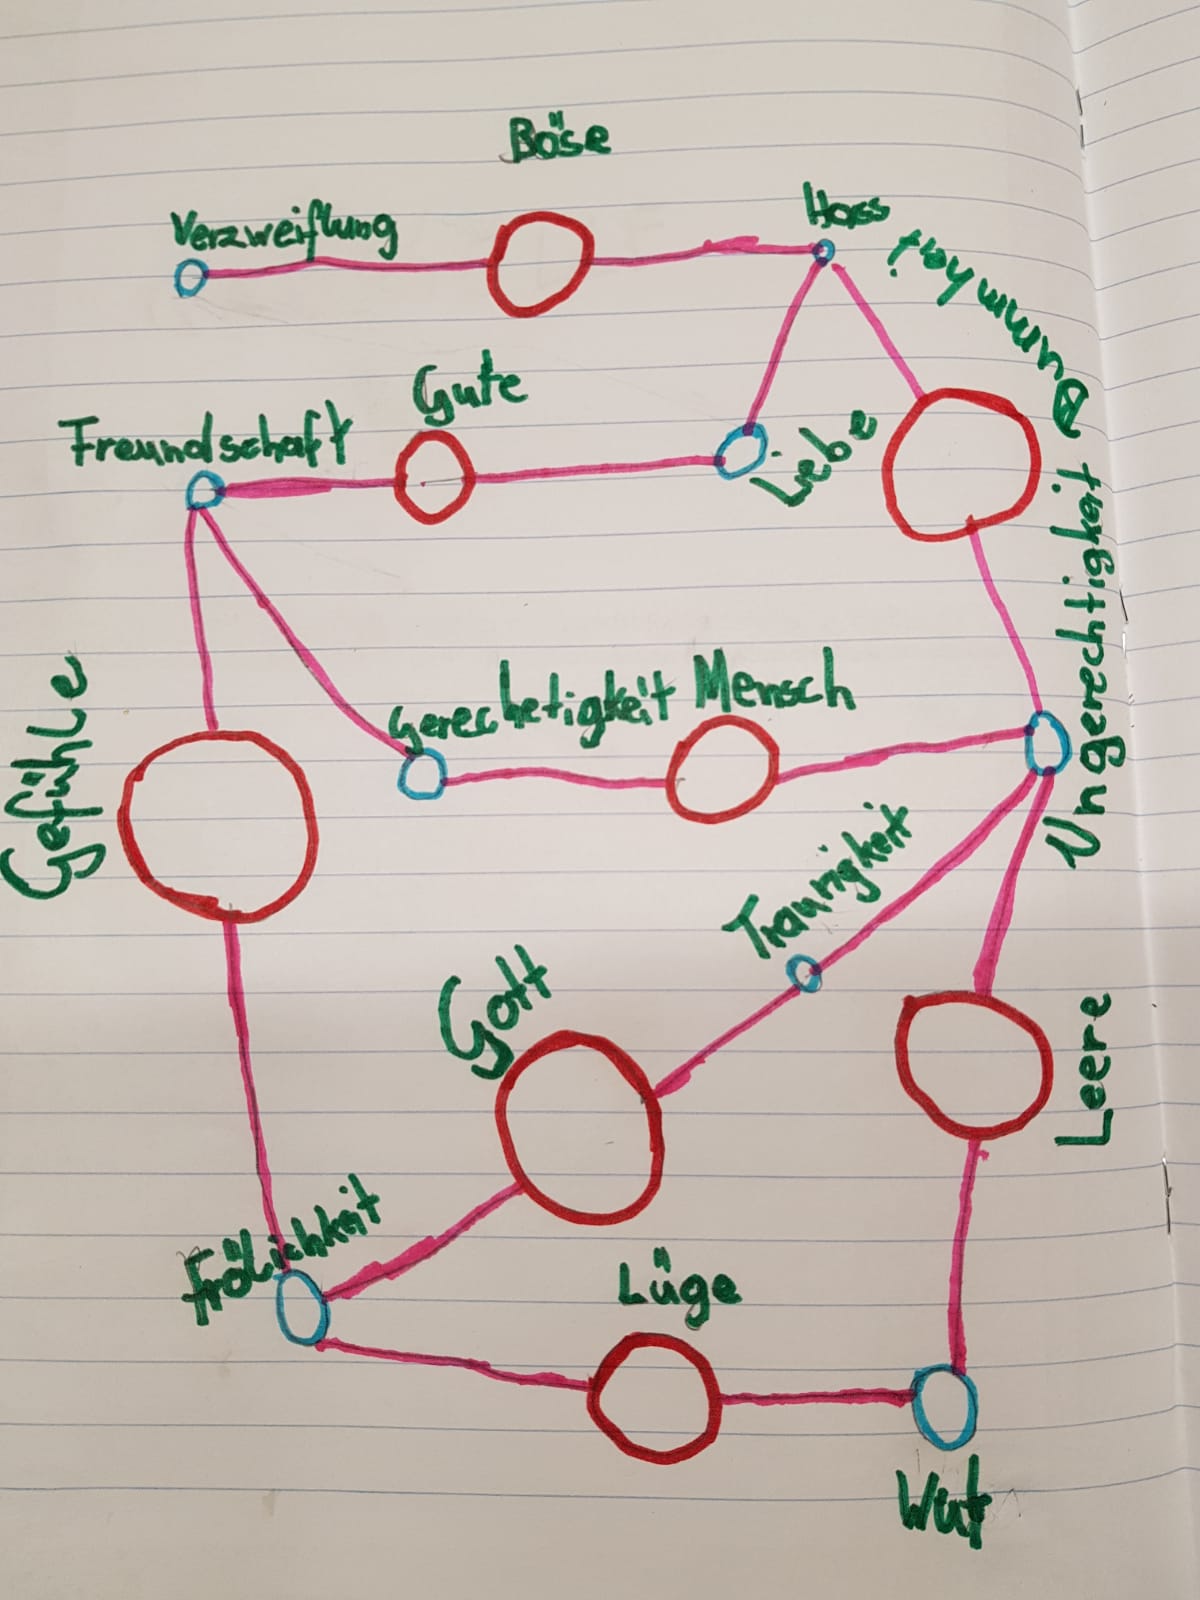 Böse
Verzweiflung
Hass
Dummheit
Gute
Freundschaft
Liebe
Ungerechtigkeit
Gerechetigkeit Mensch
Gefühle
Traurigkeit
Gott
Leere
Frölichkeit
Lüge
Wut